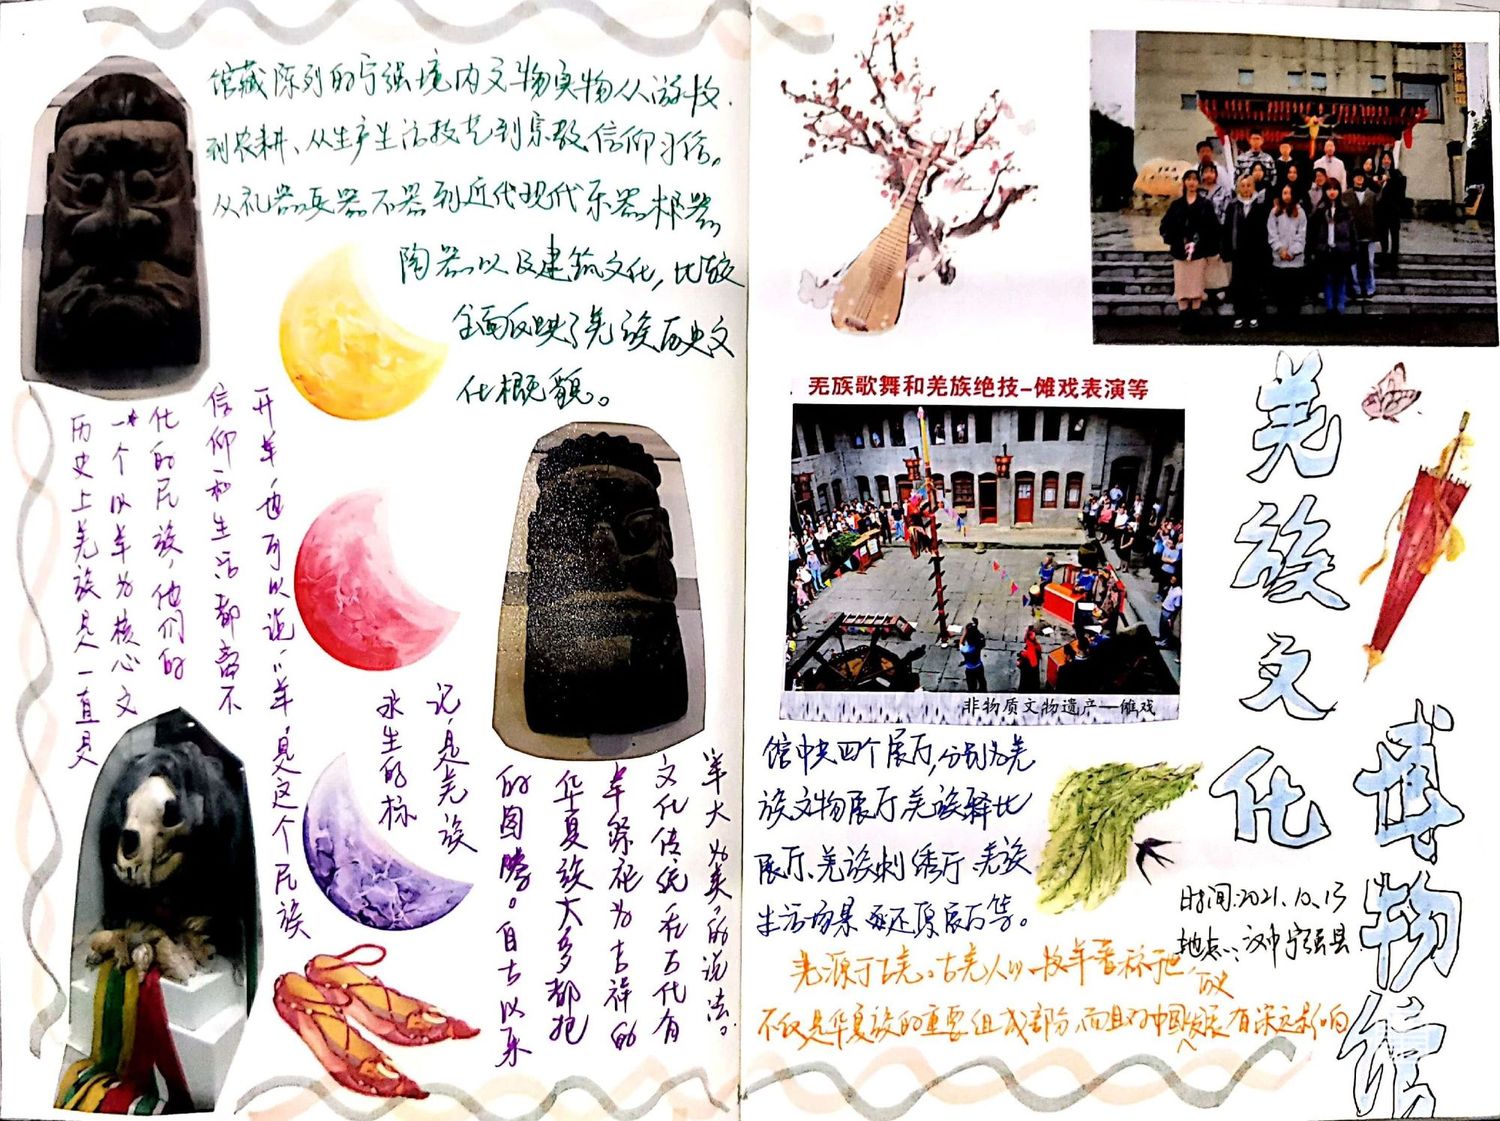 馆藏陈列的宁强境内文物实物从游牧
到农耕、从生产生活技艺到宗教信仰习俗。
从礼器兵器石器到近代现代乐器木器
陶器以及建筑文化，比较
全面反映了羌族历史文
化概貌。
历史上羌族是一直是
一个以羊为核心文
化的民族，他们的
信仰和生活都离不
开羊，也可以说，羊，是这个民族
永生的标
记，是羌族
的图腾。自古以来
华夏族大多都把
羊祭祀为吉祥的
文化传统在古代有
羊大为美的说法。
羌族歌舞和羌族绝技-傩戏表演等
非物质文物遗产—傩戏
馆中央四个展厅，分别为羌
族文物展厅羌族释比
展厅、羌族刺绣厅、羌族
生活场景还原展厅等。
羌源于古羌。古羌人以牧羊著称于世
不仅是华夏族的重要组成部分，而且对中国发展有深远影响
羌族文化
博物馆
时间：2021.10.13
地点：汉中宁强县